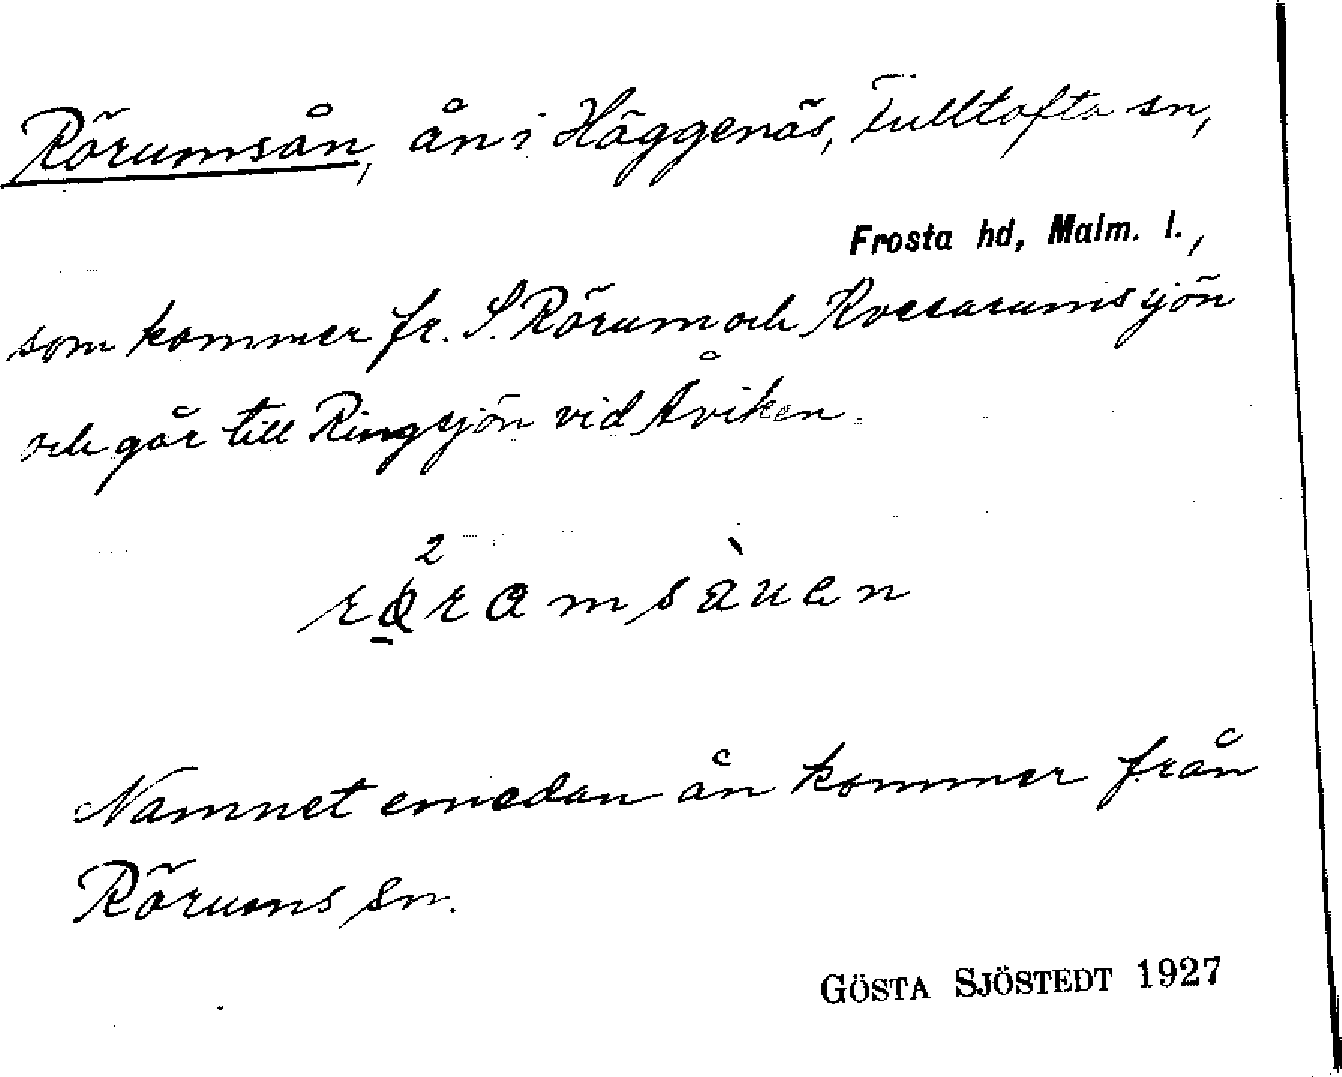 Rörumsån, ån i Häggenäs, Fulltofta sn,
Frosta hd, Malm. l.,
som kommer fr. S. Rörum och Kvesarumsjön
och går till Ringsjön vid Åviken.
Namnet emedan ån kommer från
Rörums sn.
GÖSTA SJÖSTEDT 1927